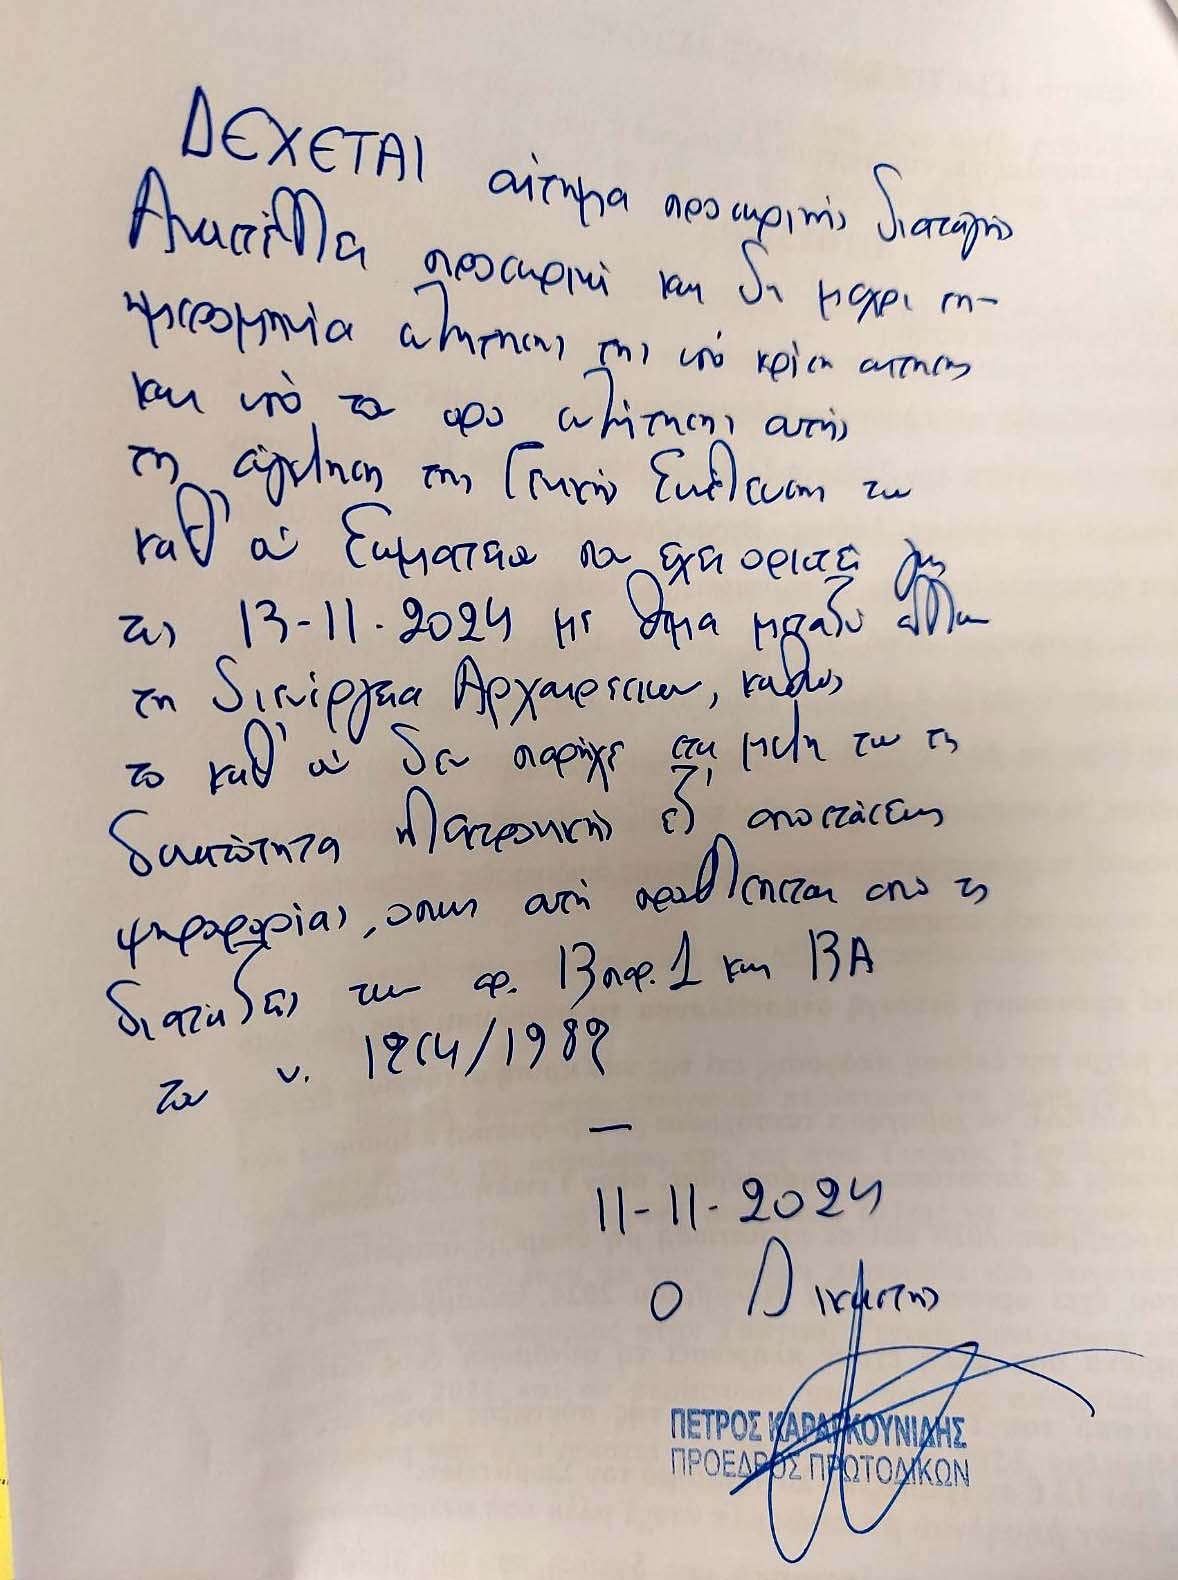 ΔΕΧΕΤΑΙ αίτημα προσωρινής διαταγής
Αναστέλλει προσωρινά και δη μέχρι τη-
ημερομηνία συζήτησης της υπό κρίση αίτησης
και υπό το όρο συζήτησης αυτής
τη σύγκληση της Γενικής Συνέλευσης του
καθ' ου Σωματείου που έχει οριστεί για
τις 13-11-2024 με θέμα μεταξύ άλλων
τη διενέργεια Αρχαιρεσιών, καθώς
το καθ' ου δεν παρήχε στα μέλη του τη
δυνατότητα ηλεκτρονικής εξ' αποστάσεως
ψηφοφορίας, όπως αυτή προβλέπεται από τις
διατάξεις των αρ. 13 παρ. 1 και 13Α
του ν. 1264/1982
—
11-11-2024
Ο Δικαστής
ΠΕΤΡΟΣ ΚΑΡΑΓΚΟΥΝΙΔΗΣ
ΠΡΟΕΔΡΟΣ ΠΡΩΤΟΔΙΚΩΝ